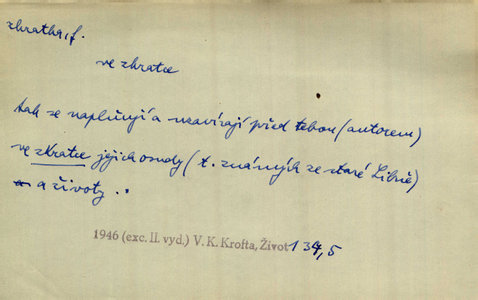 zkratka, f.
ve zkratce
tak se naplňují a uzavírají před tebou (autorem)
ve zkratce jejich osudy (t. známých ze staré Libně)
a životy ..
1946 (exc. II. vyd.) V. K. Krofta, Život 134,5